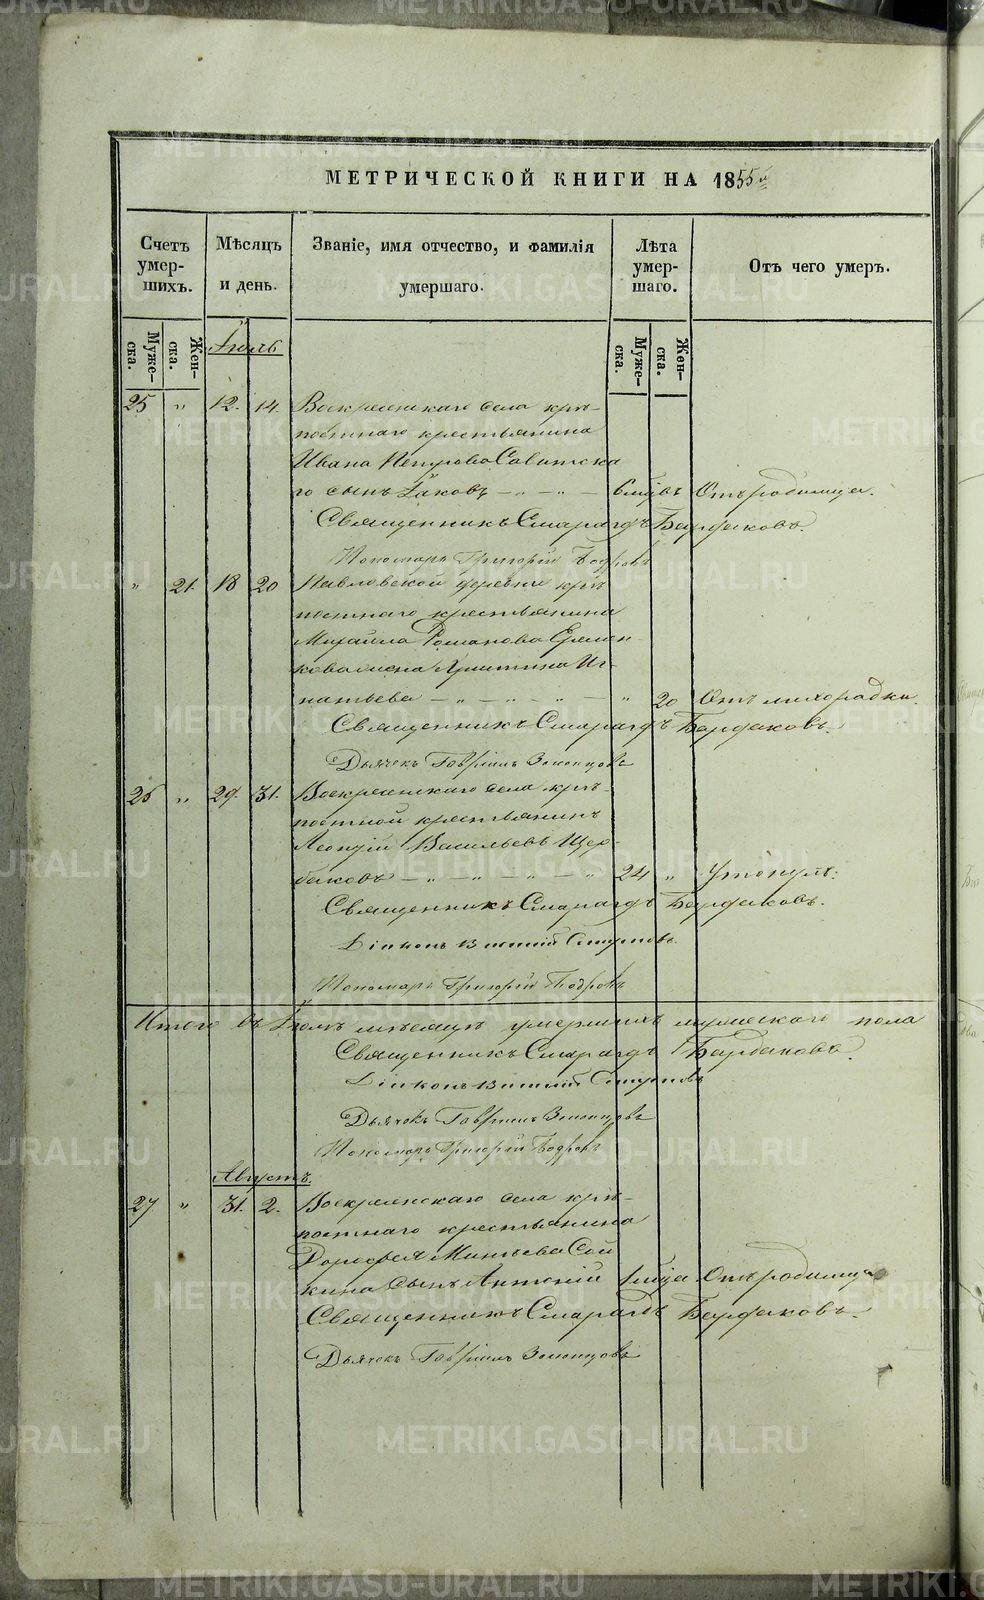 МЕТРИЧЕСКОЙ КНИГИ НА 1855й
Счетъ умер- шихъ.
Мѣсяцъ и день.
Званіе, имя отчество, и фамилія умершаго.
Лѣта умер- шаго.
Отъ чего умеръ.
Муже- ска.
Жен- ска.
Муже- ска.
Жен- ска.
Іюль
25 " 12. 14. Воскресенскаго села крѣ-
постнаго крестьянина
Ивана Петрова Савитска
го сынъ Іаковъ — " — " — 6 мцовъ Отъ родимца.
Священникъ Смарагдъ Бардаковъ.
Пономарь Григорій
" 21. 18 20 Павловской деревни крѣ
постнаго крестьянина
Михайла Романова Еремен-
кова жена Христина Иг-
натьева — " — " — " — " 20 Отъ лихорадки.
Священникъ Смарагдъ Бардаковъ.
Дьячекъ Гавріилъ
26 " 29. 31. Воскресенскаго села крѣ-
постной крестьянинъ
Леонтій Васильевъ Щер-
баковъ — " — " — " — " 24 " Утонулъ.
Священникъ Смарагдъ Бардаковъ.
Діаконъ
Пономарь Григорій
Итого въ Іюлѣ мѣсяцѣ умершихъ мужескаго пола
Священникъ Смарагдъ Бардаковъ.
Діаконъ
Дьячекъ Гавріилъ
Пономарь Григорій
Августъ.
27 " 31. 2. Воскресенскаго села крѣ-
постнаго крестьянина
Дорофея Матвѣева Сой
кина сынъ Антоній 1 мца Отъ родимца
Священникъ Смарагдъ Бардаковъ.
Дьячекъ Гавріилъ
METRIKI.GASO-URAL.RU